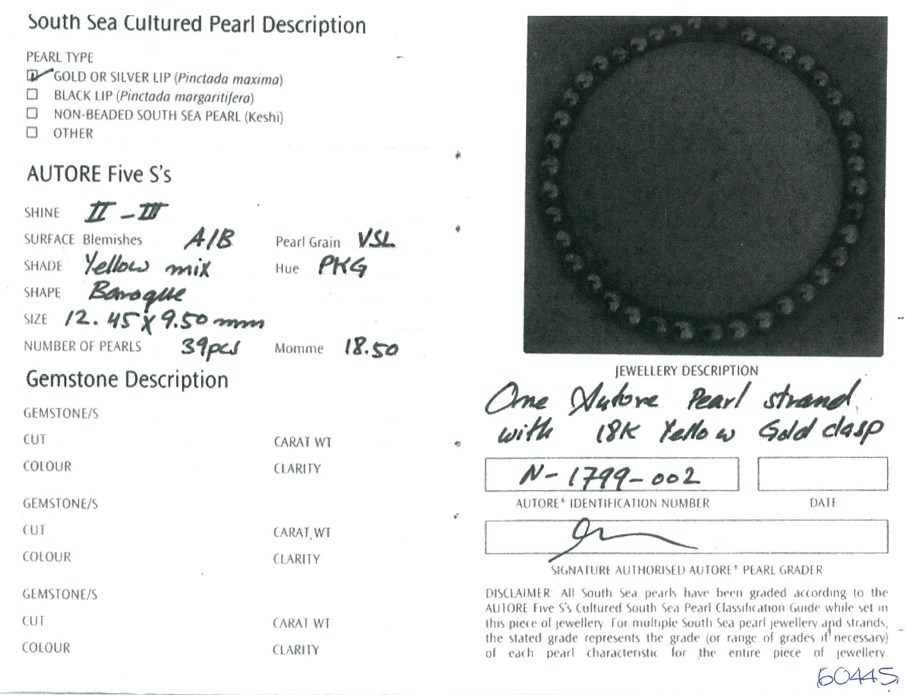 South Sea Cultured Pearl Description
PEARL TYPE
GOLD OR SILVER LIP (Pinctada maxima)
BLACK LIP (Pinctada margaritifera)
NON-BEADED SOUTH SEA PEARL (Keshi)
OTHER
AUTORE Five S's
SHINE II - III
SURFACE Blemishes A/B Pearl Grain VSL
SHADE Yellow mix Hue PKG
SHAPE Baroque
SIZE 12.45 X 9.50 mm
NUMBER OF PEARLS 39pcs Momme 18.50
Gemstone Description
GEMSTONE/S
CUT CARAT WT
COLOUR CLARITY
GEMSTONE/S
CUT CARAT WT
COLOUR CLARITY
GEMSTONE/S
CUT CARAT WT
COLOUR CLARITY
JEWELLERY DESCRIPTION
One Autore Pearl strand,
with 18K Yellow Gold clasp
N-1799-002
AUTORE® IDENTIFICATION NUMBER DATE
SIGNATURE AUTHORISED AUTORE® PEARL GRADER
DISCLAIMER: All South Sea pearls have been graded according to the
AUTORE Five S's Cultured South Sea Pearl Classification Guide while set in
this piece of jewellery. For multiple South Sea pearl jewellery and strands,
the stated grade represents the grade (or range of grades if necessary)
of each pearl characteristic for the entire piece of jewellery.
60445